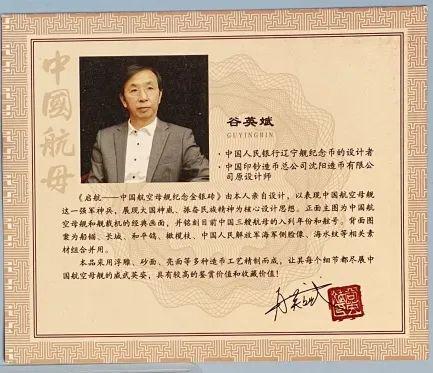 中國航母
谷英斌
GUYINGBIN
·中国人民银行辽宁舰纪念币的设计者
·中国印钞造币总公司沈阳造币有限公
司原设计师
《启航——中国航空母舰纪念金银砖》由本人亲自设计，以表现中国航空母舰
这一强军神兵，展现大国神威、振奋民族精神为核心设计思想。正面主图为中国航
空母舰和舰载机的经典画面，并铭刻目前中国三艘航母的入列年份和舷号。背面图
案为船锚、长城、和平鸽、橄榄枝、中国人民解放军海军侧脸像、海水纹等相关素
材组合并用。
本品采用浮雕、砂面、亮面等多种造币工艺精制而成，让其每个细节都尽展中
国航空母舰的威武英姿，具有较高的鉴赏价值和收藏价值！